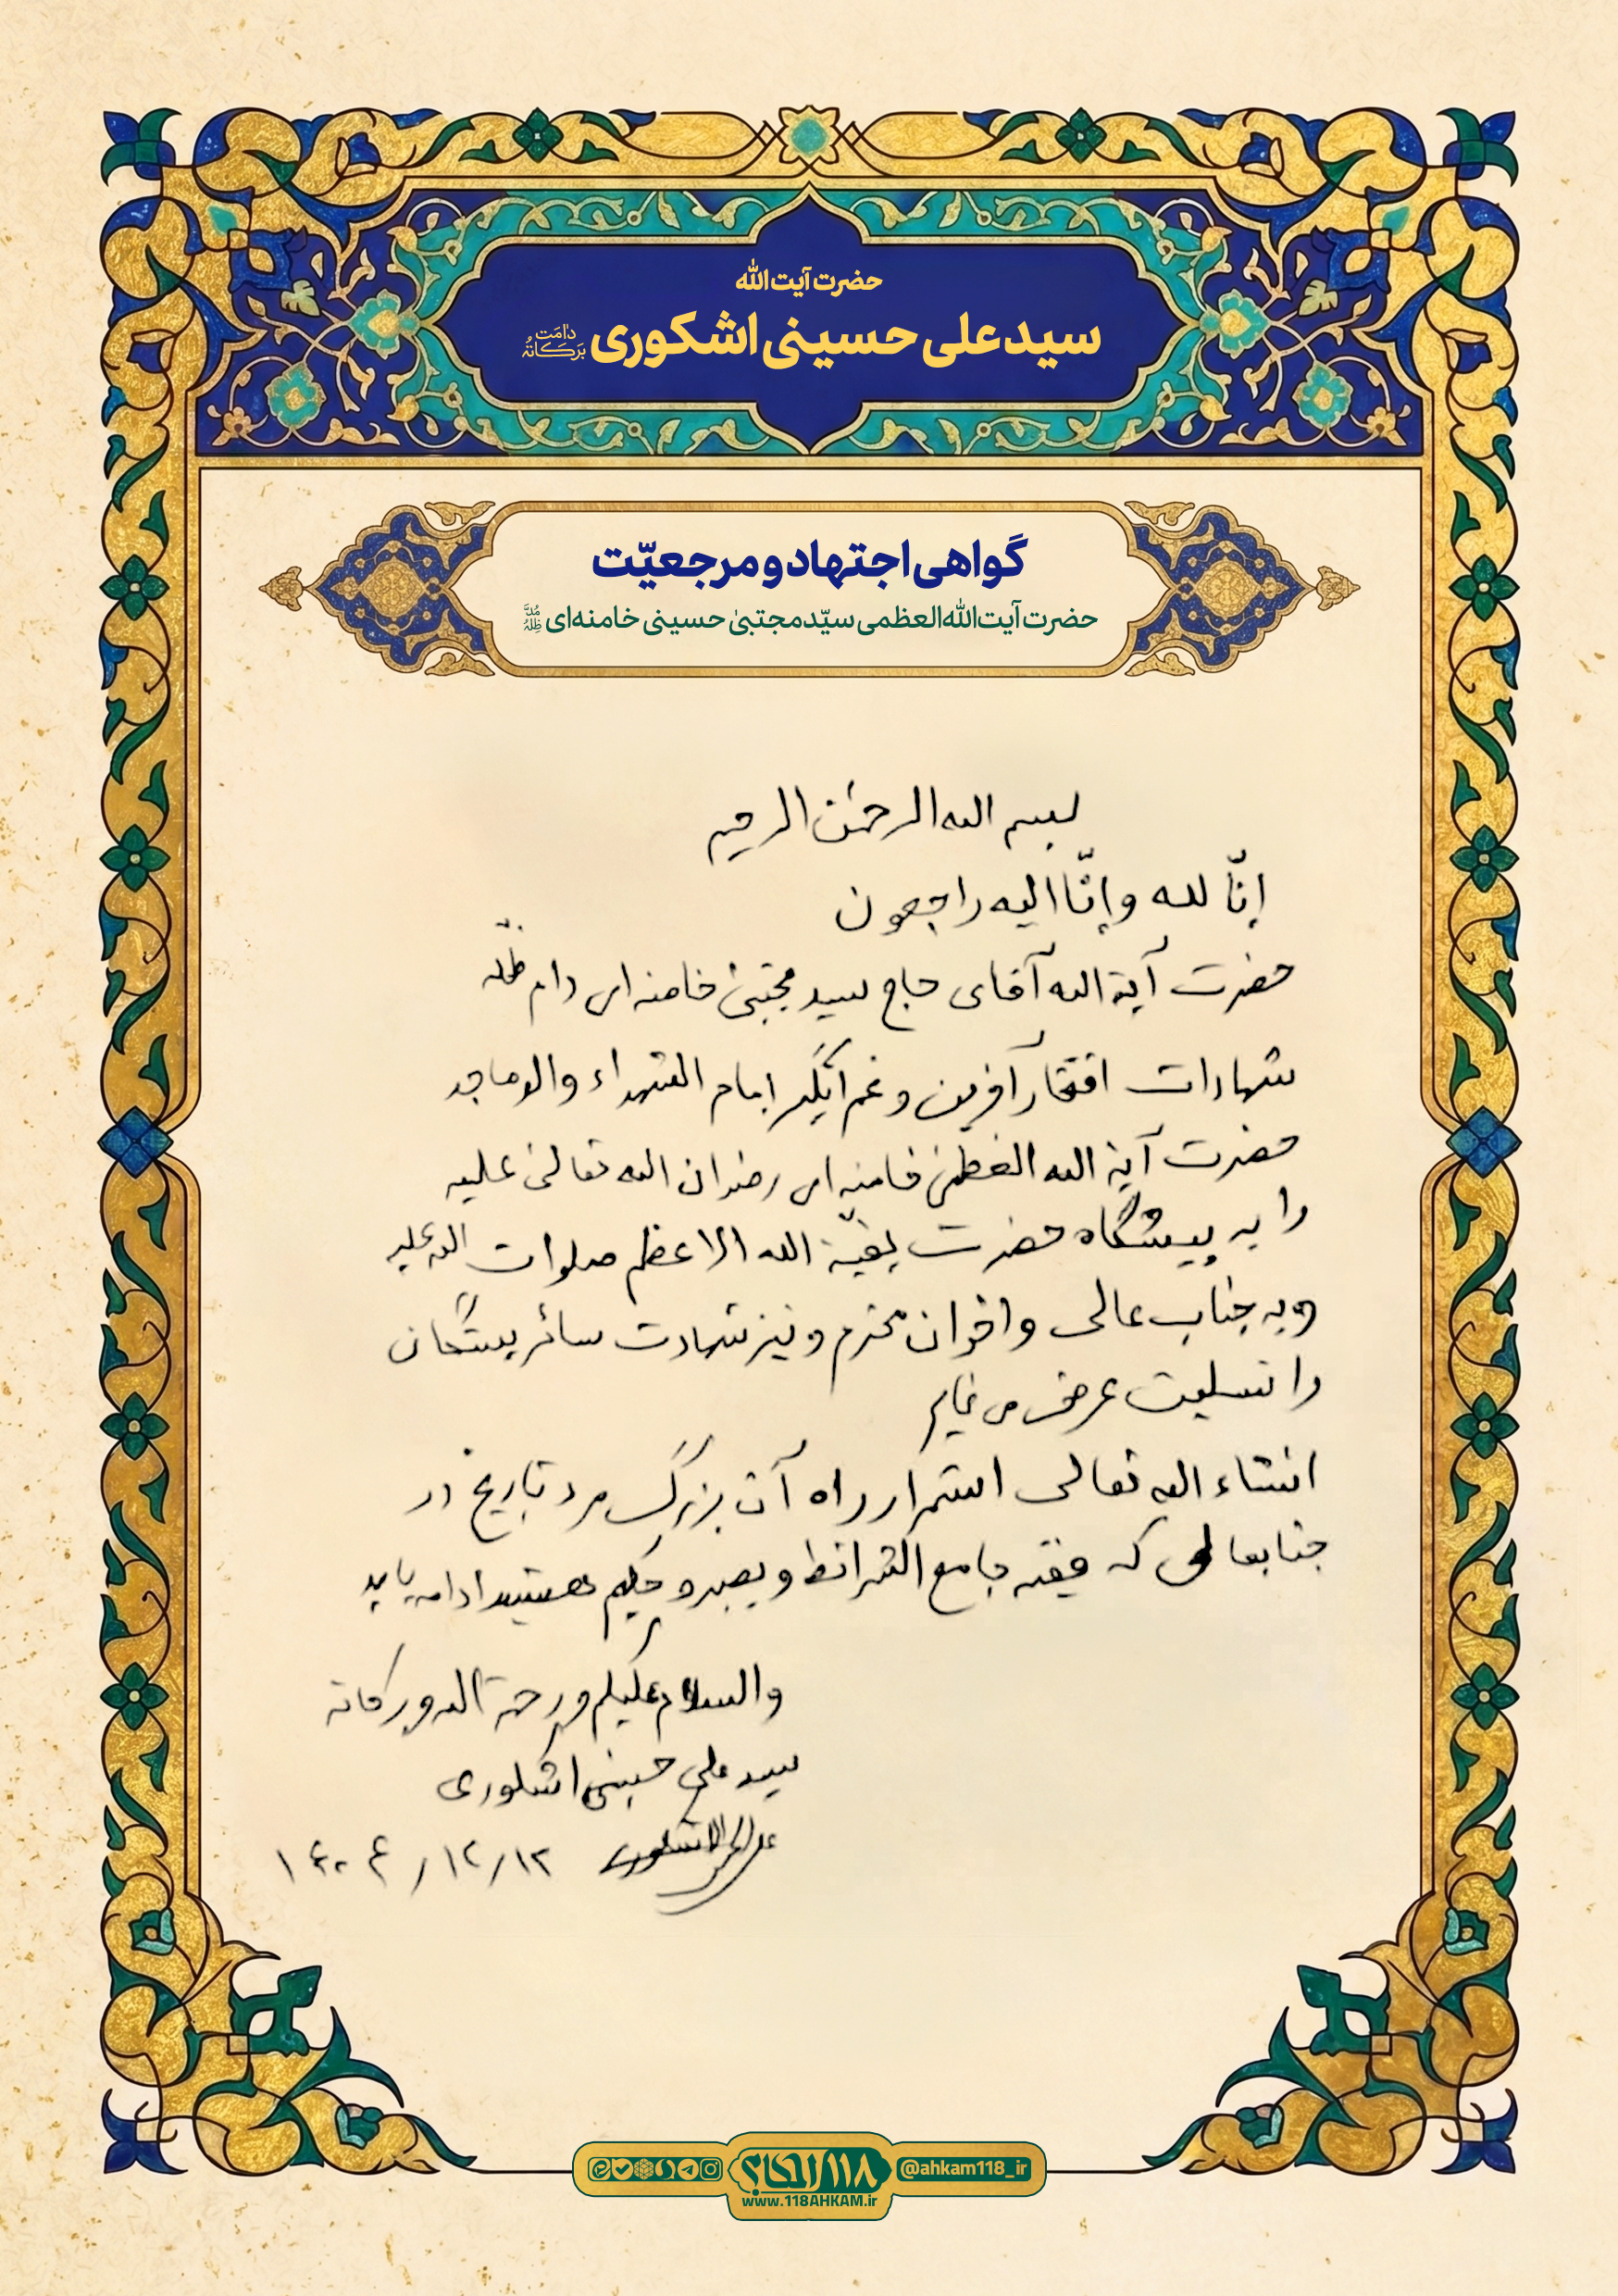 حضرت آیت الله
سید علی حسینی اشکوری دامَت بَرَکاتُهُ
گواهی اجتهاد و مرجعیّت
حضرت آیت‌الله‌العظمی سیّد مجتبیٰ حسینی خامنه‌ای مُدَّ ظِلُّهُ
بسم الله الرحمٰن الرحیم
إنّا لله وإنّا الیه راجعون
حضرت آیة الله آقای حاج سید مجتبیٰ خامنه‌ای دام ظلّه
شهادت افتخار آفرین و غم انگیز امام الشهداء والد ماجد
حضرت آیة الله العظمیٰ خامنه‌ای رضوان الله تعالیٰ علیه
را به پیشگاه حضرت بقیّة الله الاعظم صلوات الله علیه
و به جناب عالی و اخوان محترم و نیز شهادت سائر بستگان
را تسلیت عرض می نمایم
انشاء الله تعالی استمرار راه آن بزرگ مرد تاریخ در
جنابعالی که فقیه جامع الشرائط و بصیر و حکیم هستید ادامه یابد
والسلام علیکم ورحمة الله وبرکاته
سید علی حسینی اشکوری
۱۴۰۴/۱۲/۱۲
@ahkam118_ir
۱۱۸ احکام
www.118AHKAM.ir